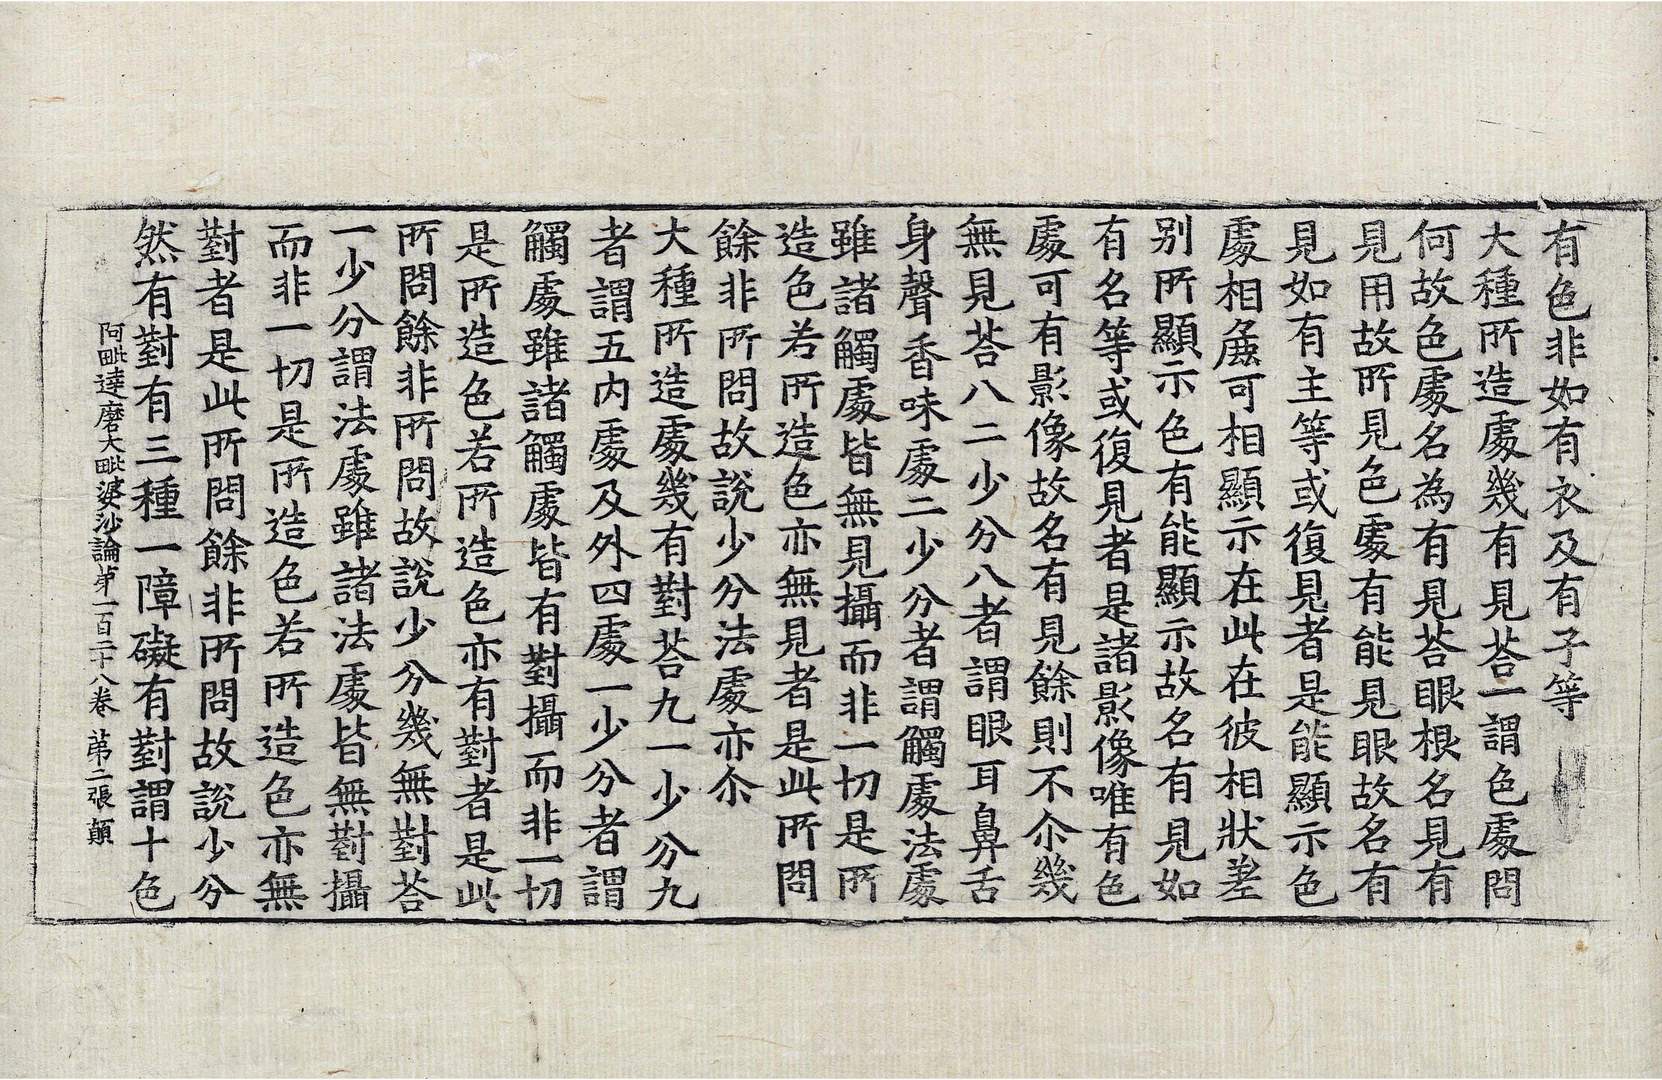 有色非如有衣及有子等
大種所造處幾有見荅一謂色處問
何故色處名為有見荅眼根名見有
見用故所見色處有能見眼故名有
見如有主等或復見者是能顯示色
處相麁可相顯示在此在彼相狀差
別所顯示色有能顯示故名有見如
有名等或復見者是諸影像唯有色
處可有影像故名有見餘則不尒幾
無見荅八二少分八者謂眼耳鼻舌
身聲香味處二少分者謂觸處法處
雖諸觸處皆無見攝而非一切是所
造色若所造色亦無見者是此所問
餘非所問故說少分法處亦尒
大種所造處幾有對荅九一少分九
者謂五內處及外四處一少分者謂
觸處雖諸觸處皆有對攝而非一切
是所造色若所造色亦有對者是此
所問餘非所問故說少分幾無對荅
一少分謂法處雖諸法處皆無對攝
而非一切是所造色若所造色亦無
對者是此所問餘非所問故說少分
然有對有三種一障礙有對謂十色
阿毗達磨大毗婆沙論第一百二十八卷 第二張 顛